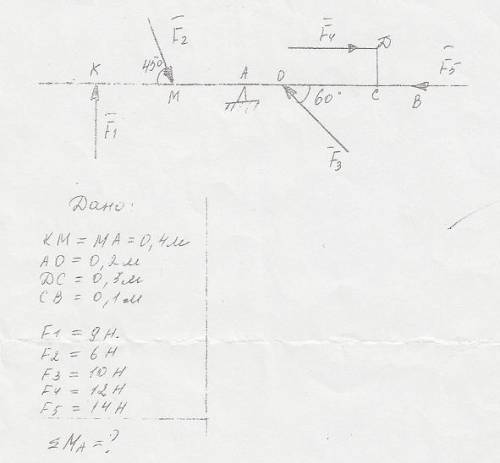 F̅2
F̅4
D
45°
K
A
O
F̅5
M
60°
C
B
F̅1
F̅3
Дано:
KM = MA = 0,4м
AO = 0,2м
DC = 0,3м
CB = 0,1м
F1 = 9Н.
F2 = 6Н
F3 = 10Н
F4 = 12Н
F5 = 14Н
ΣMA = ?